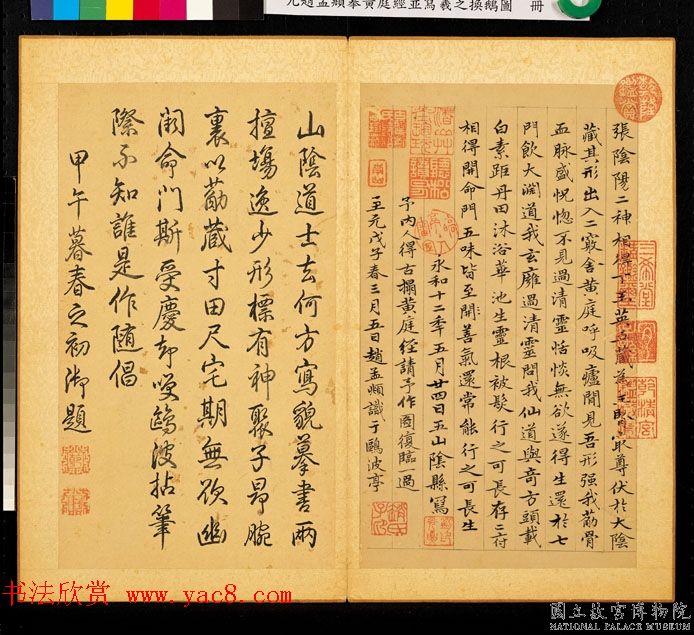 元趙孟頫摹黃庭經並寫羲之換鵝圖 冊
張陰陽二神相得下玉英五藏為主腎最尊伏於太陰
藏其形出入二竅舍黃庭呼吸廬間見吾形强我筋骨
血脉盛怳惚不見過清靈恬惔無欲遂得生還於七
門飲大淵道我玄廱過清靈問我仙道與奇方頭載
白素距丹田沐浴華池生靈根被髮行之可長存二府
相得開命門五味皆至開善氣還常能行之可長生
永和十二年五月廿四日五山陰縣寫
予內人得古搨黃庭經請予作圖復臨一過
至元戊子春三月五日趙孟頫識于鷗波亭
乾隆鑑賞
三希堂
乾清宮
趙氏子昂
山陰道士去何方寫貌摹書兩
擅場逸少形標有神聚子昂腕
裏以筋藏寸田尺宅期無欲幽
闕命門斯受慶却喚鷗波拈筆
際不知誰是作隨倡
甲午暮春之初御題
书法欣赏 www.yac8.com
國立故宮博物院
NATIONAL PALACE MUSEUM